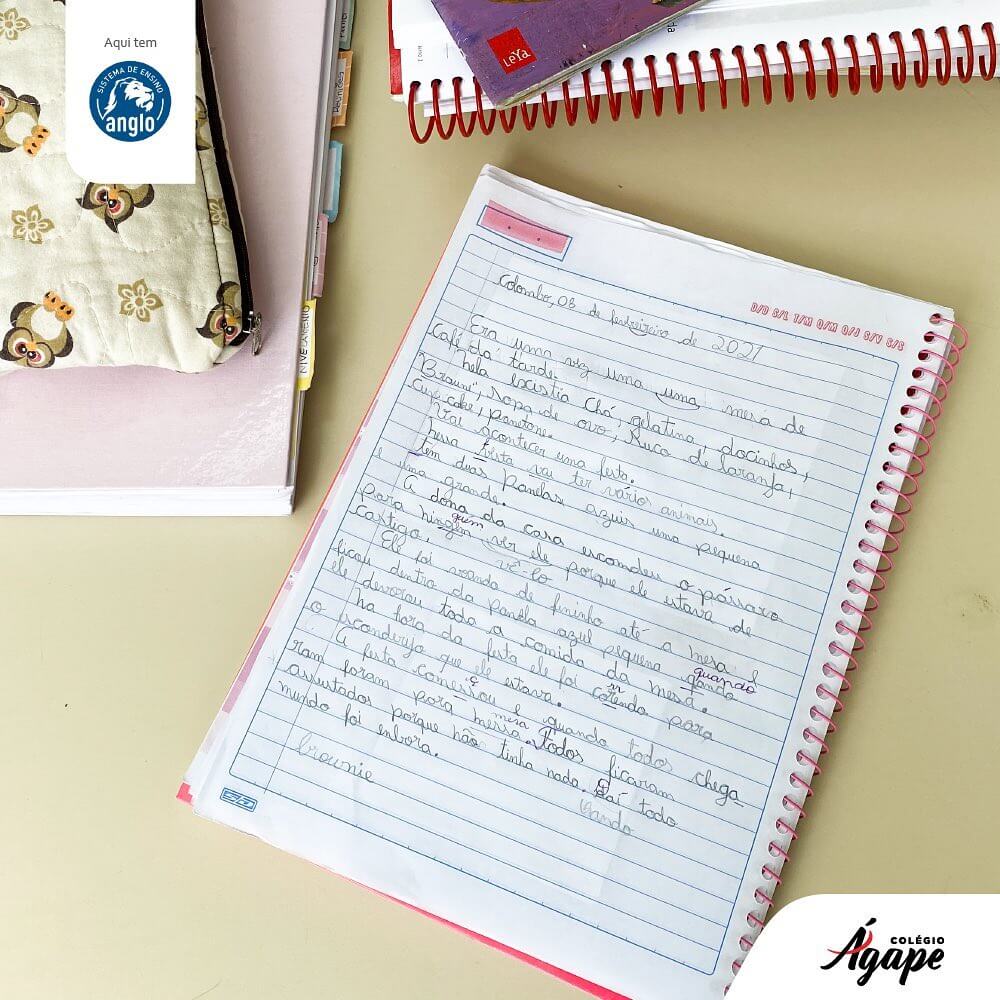 Aqui tem
SISTEMA DE ENSINO
anglo
LeYa
D/D S/L T/M Q/M Q/J S/V S/S
Colombo, 08 de fevereiro de 2021
Era uma vez uma uma mesa de
Café da tarde.
Nela existia Chá, gelatina, docinhos,
"Brauni", sopa de ovo, suco de laranja,
cupi-cake, panetone.
Vai acontecer uma festa.
nessa festa vai ter vários animais.
tem duas panelas azuis uma pequena
e uma grande.
A dona da casa escondeu o pássaro
quem
para ningem ver ele porque ele estava de
castigo. vê-lo
Ele foi voando de fininho até a mesa e
ficou dentro da panela azul pequena gando
quando
ele devorou toda a comida da mesa.
na hora da festa ele foi corendo para
rr
o esconderijo que ele estava.
A festa comessou e quando todos chega
ç
ram foram para messa. todos ficaram
mesa
assustados porque não tinha nada. daí todo
mundo foi enbora.
brownie
COLÉGIO
Ágape